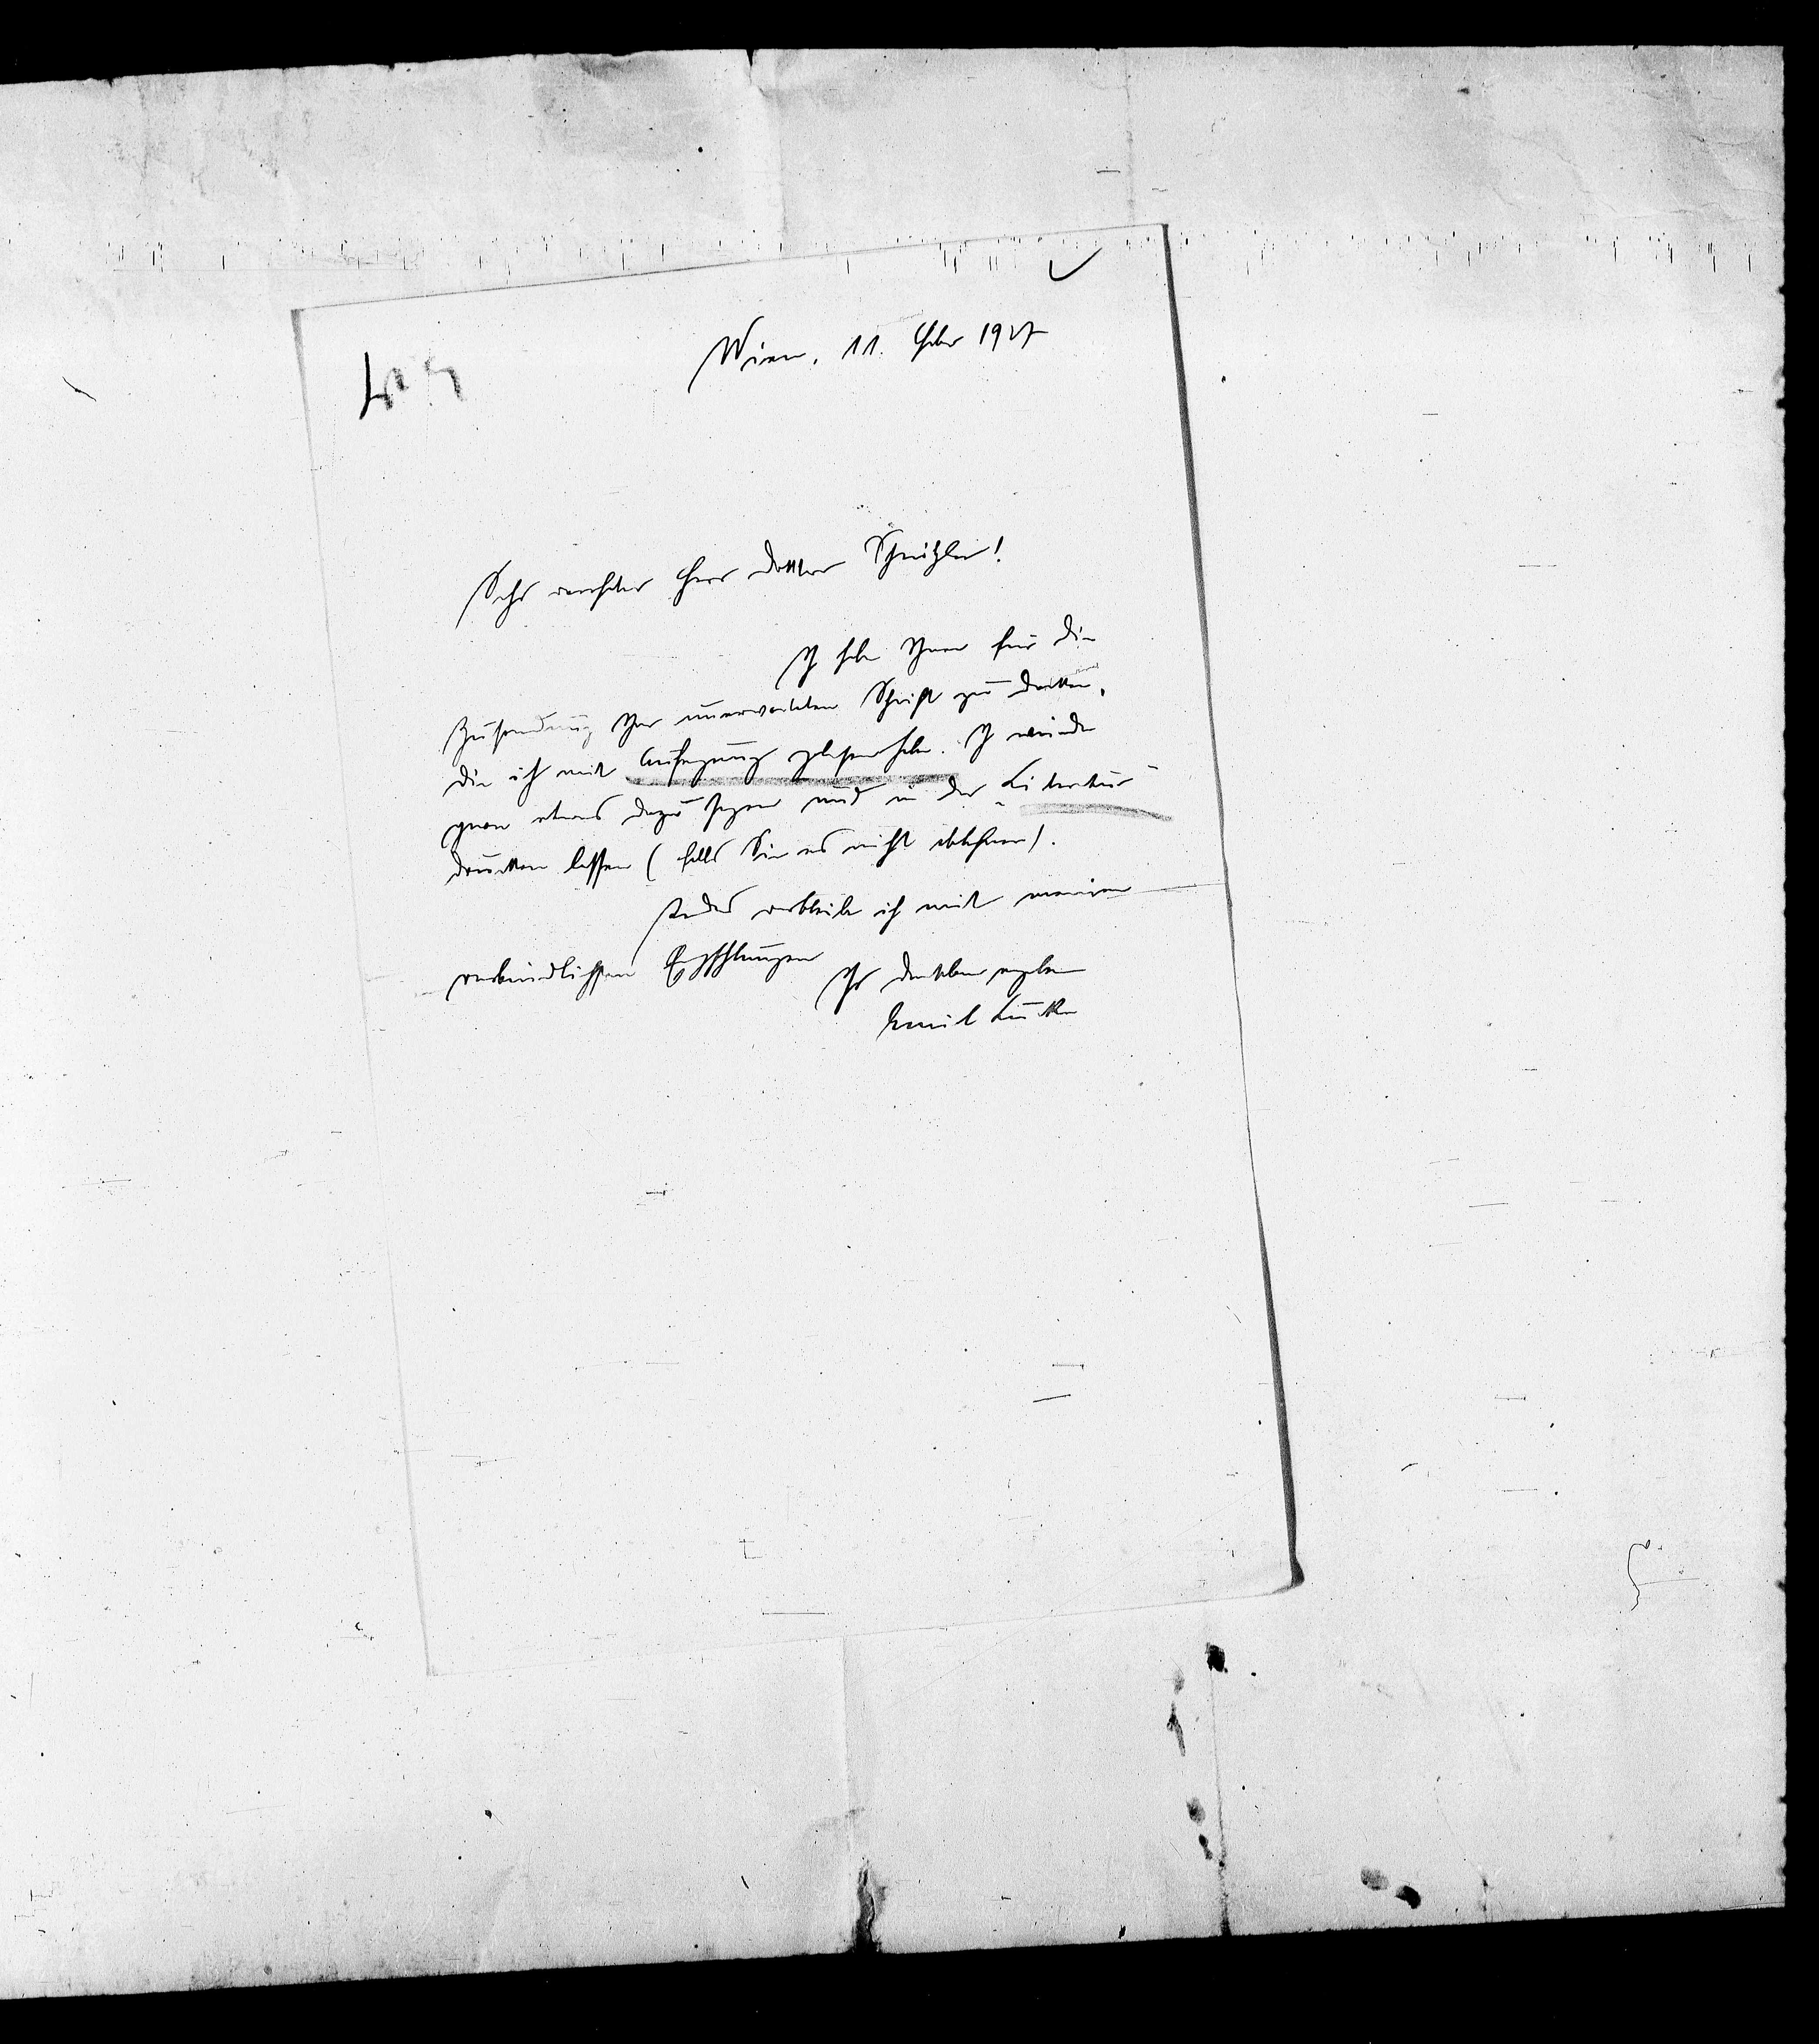 Wien, 11. Feber 1927
Sehr verehrter Herr Doktor Schnitzler!
Ich habe Ihnen für die
Zusendung Ihrer unerwarteten Schrift zu danken,
die ich mit Aufregung gelesen habe. Ich würde
gern etwas dazu sagen und in der „Literatur“
drucken lassen (falls Sie es nicht ablehnen).
verbleibe ich mit meinen
verbindlichsten Empfehlungen
Ihr dankbar ergebener
Emil Lucka